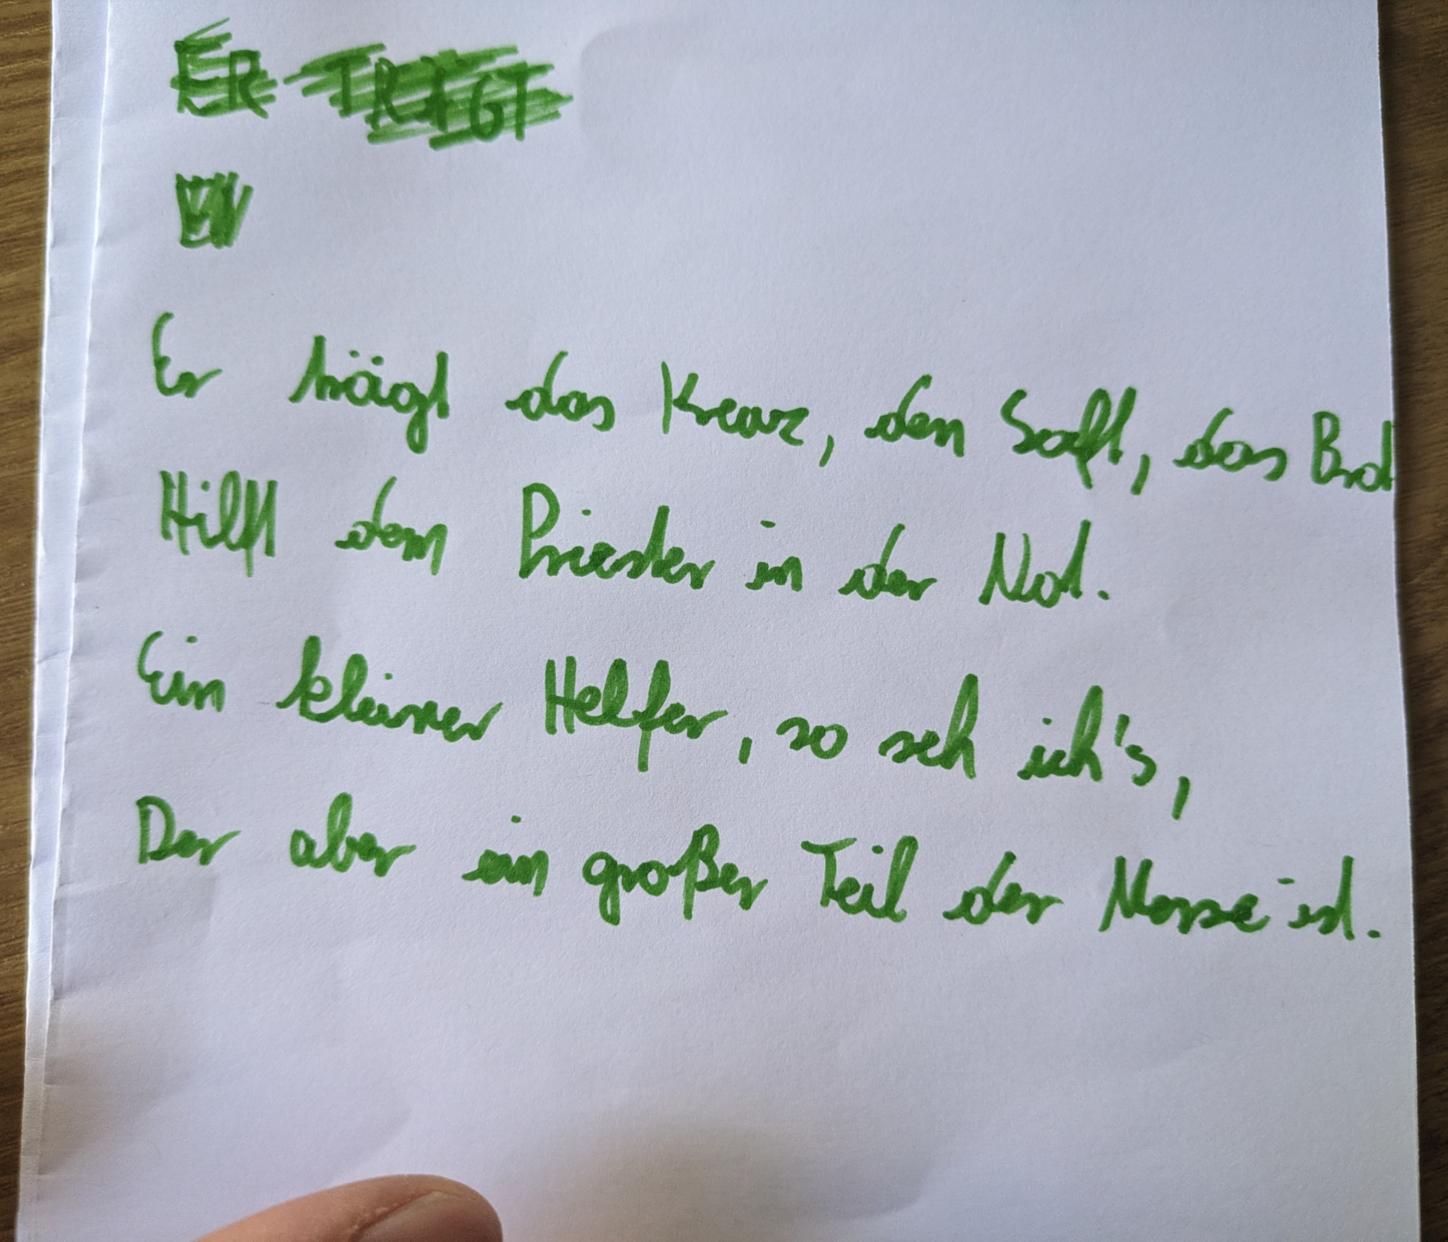 ER TRÄGT
Er trägt das Kreuz, den Saft, das Brot
Hilft dem Priester in der Not.
Ein kleiner Helfer, so seh ich's,
Der aber ein großer Teil der Messe ist.